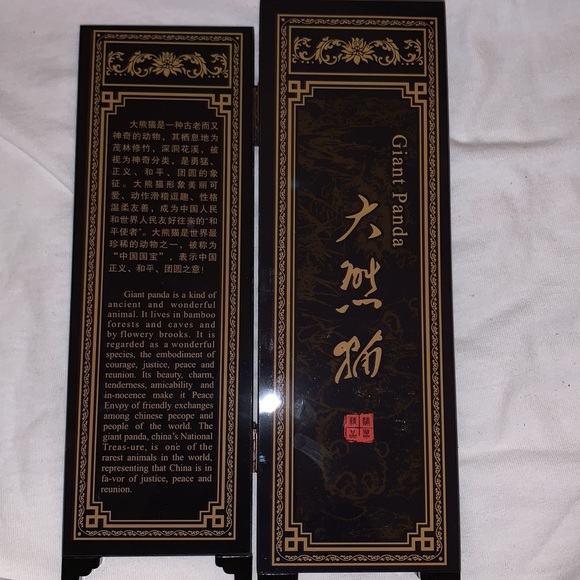 大熊猫是一种古老而又
神奇的动物，其栖息地为
茂林修竹，深洞花溪，被
视为神奇分类，是勇猛、
正义、和平、团圆的象
征。大熊猫形象美丽可
爱、动作滑稽逗趣、性格
温柔友善，成为中国人民
和世界人民友好往来的“和
平使者”。大熊猫是世界最
珍稀的动物之一，被称为
“中国国宝”，表示中国
正义、和平、团圆之意！
Giant panda is a kind of
ancient and wonderful
animal. It lives in bamboo
forests and caves and
by flowery brooks. It is
regarded as a wonderful
species, the embodiment of
courage, justice, peace and
reunion. Its beauty, charm,
tenderness, amicability and
in-nocence make it Peace
Envpy of friendly exchanges
among chinese pecope and
people of the world. The
giant panda, china's National
Treas-ure, is one of the
rarest animals in the world,
representing that China is in
fa-vor of justice, peace and
reunion.
Giant Panda
大熊猫